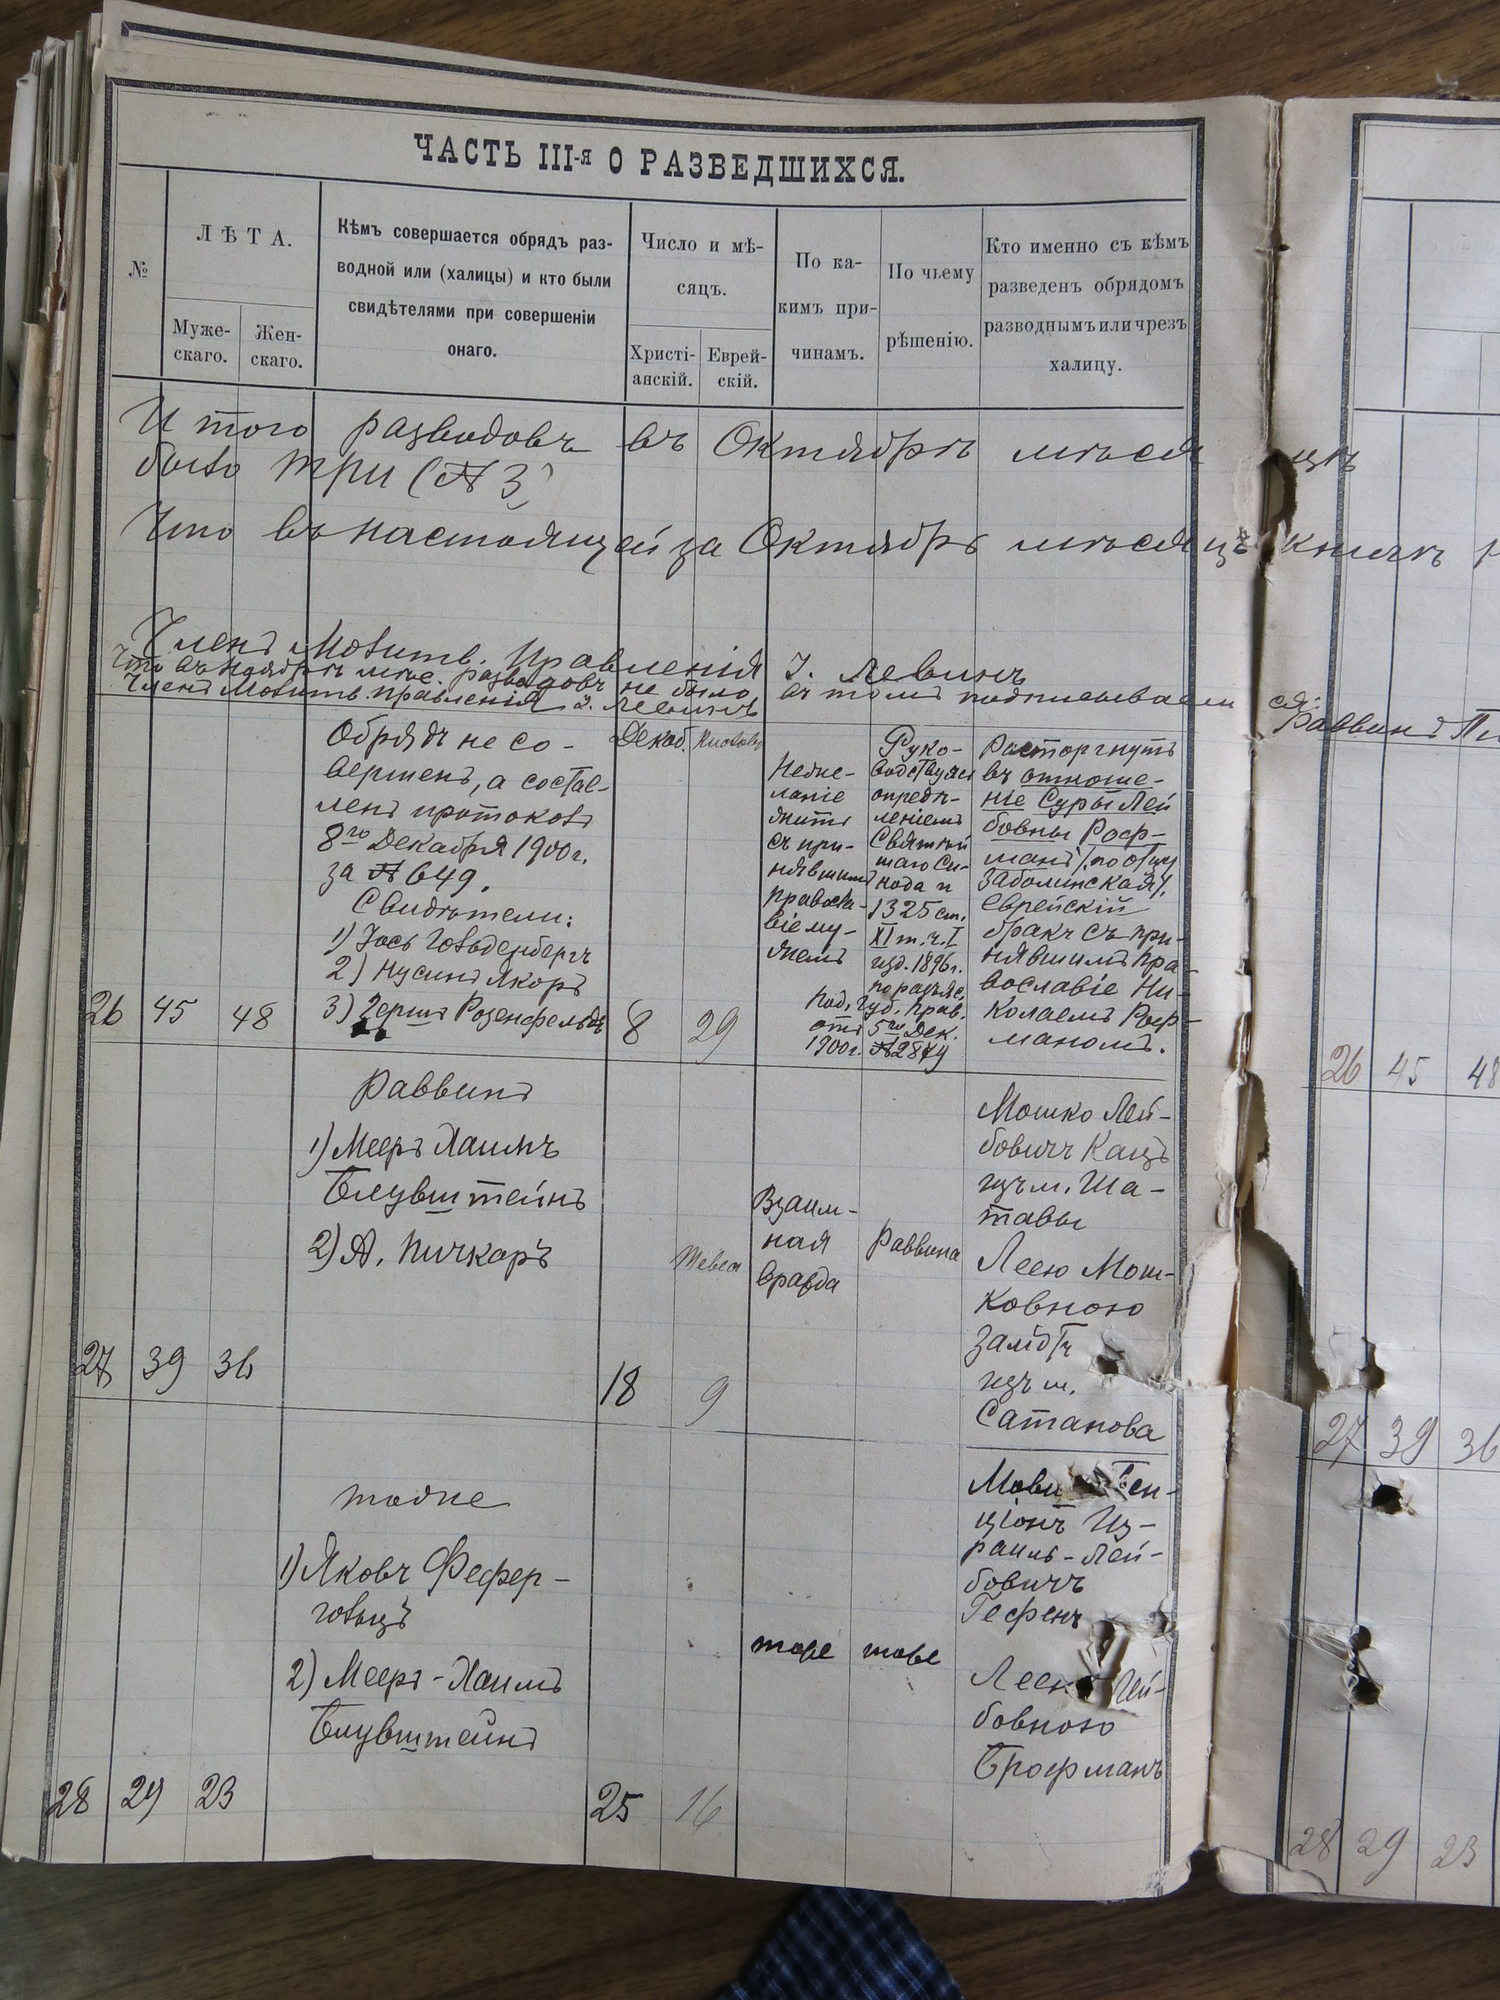 ЧАСТЬ III-я О РАЗВЕДШИХСЯ.
№
ЛѢТА.
Муже-
скаго.
Жен-
скаго.
Кѣмъ совершается обрядъ раз-
водной или (халицы) и кто были
свидѣтелями при совершеніи
онаго.
Число и мѣ-
сяцъ.
Христі-
анскій.
Еврей-
скій.
По ка-
кимъ при-
чинамъ.
По чьему
рѣшенію.
Кто именно съ кѣмъ
разведенъ обрядомъ
разводнымъ или чрезъ
халицу.
Итого разводовъ въ Октябрѣ мѣсяцѣ
было три (№ 3)
Что въ настоящей за Октябрь мѣсяцъ книгѣ
Членъ Молитв. Правленія І. Левинъ
Что въ Ноябрѣ мѣс. разводовъ не было въ томъ подписываемся:
Членъ Молитв. Правленія І. Левинъ
Раввинъ
Обрядъ не со-
вершенъ, а состав-
ленъ протоколъ
8го Декабря 1900г.
за № 649.
Свидѣтели:
1) Іось Гольденбергъ
2) Нусинъ Якоръ
3) Гершъ Розенфельдъ
26 45 48
Декаб. Кислевъ
8 29
Неже-
ланіе
жить
съ при-
нявшимъ
правосла-
віе му-
жемъ
Руко-
водствуясь
опредѣ-
леніемъ
Святѣй
шаго Си-
нода и
1325 ст.
XI т. ч. I
изд. 1896г.
по разъяс.
Под. Губ. Прав.
отъ 5го Дек.
1900г. № 2879
Расторгнутъ
въ отноше-
ніе Суры Лей
бовны Роф-
манъ /по отцу
Заболинская/,
еврейскій
бракъ съ при-
нявшимъ пра-
вославіе Ни-
колаемъ Роф-
маномъ.
26 45 48
Раввинъ
1) Мееръ Хаимъ
Блувштейнъ
2) А. Пичкаръ
27 39 36
Тевеса
18 9
Взаим-
ная
вражда
Раввина
Мошко Лей-
бовичъ Кацъ
изъ м. Ша-
тавы
Леею Мош-
ковною
изъ м.
Сатанова
27 39 36
тоже
1) Яковъ Фефер-
гольцъ
2) Мееръ-Хаимъ
Блувштейнъ
28 29 23
25 16
тоже тоже
Бен-
ціонъ Из-
раиль-Лей-
бовичъ
Гефенъ
Леею Лей-
бовною
Брофманъ
28 29 23